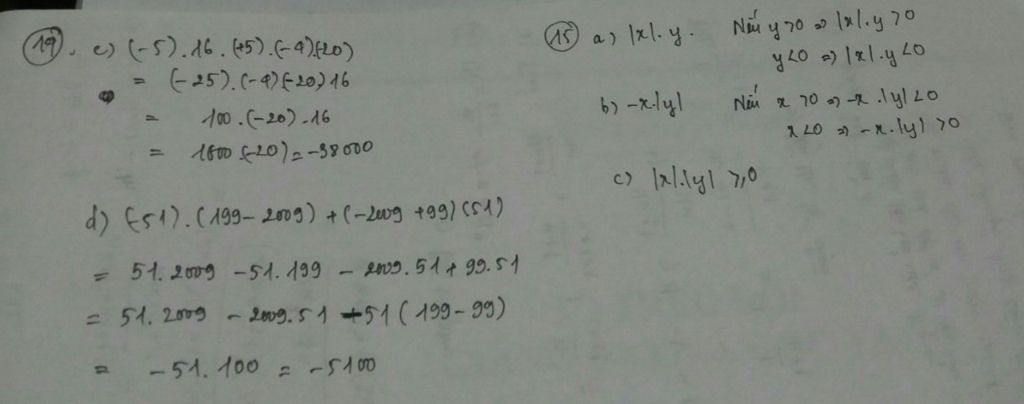 19. c) (-5).16.(+5).(-4)(-20)
= (-25).(-4)(-20)16
= 100.(-20).16
= 1600.(-20) = -38000
d) (-51).(199-2009)+(-2009+99)(51)
= 51.2009 -51.199 - 2009.51+99.51
= 51.2009 - 2009.51 -51(199-99)
= -51.100 = -5100
15 a) |x|.y. Nếu y>0 => |x|.y>0
y<0 => |x|.y<0
b) -x.|y| Nếu x>0 => -x.|y|<0
x<0 => -x.|y|>0
c) |x|.|y| ≥0